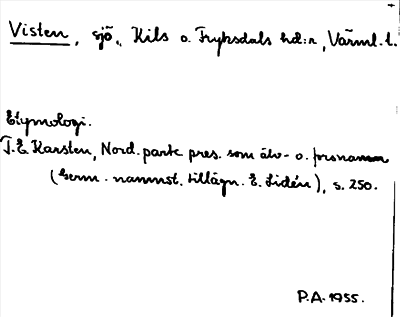 Visten, sjö, Kils o. Fryksdals hd:r, Värml. l.
Etymologi.
T.E. Karsten, Nord. partc. pres. som älv- o. prsnamn
(Germ. namnst. tillägn. E. Lidén), s. 250.
P.A. 1955.